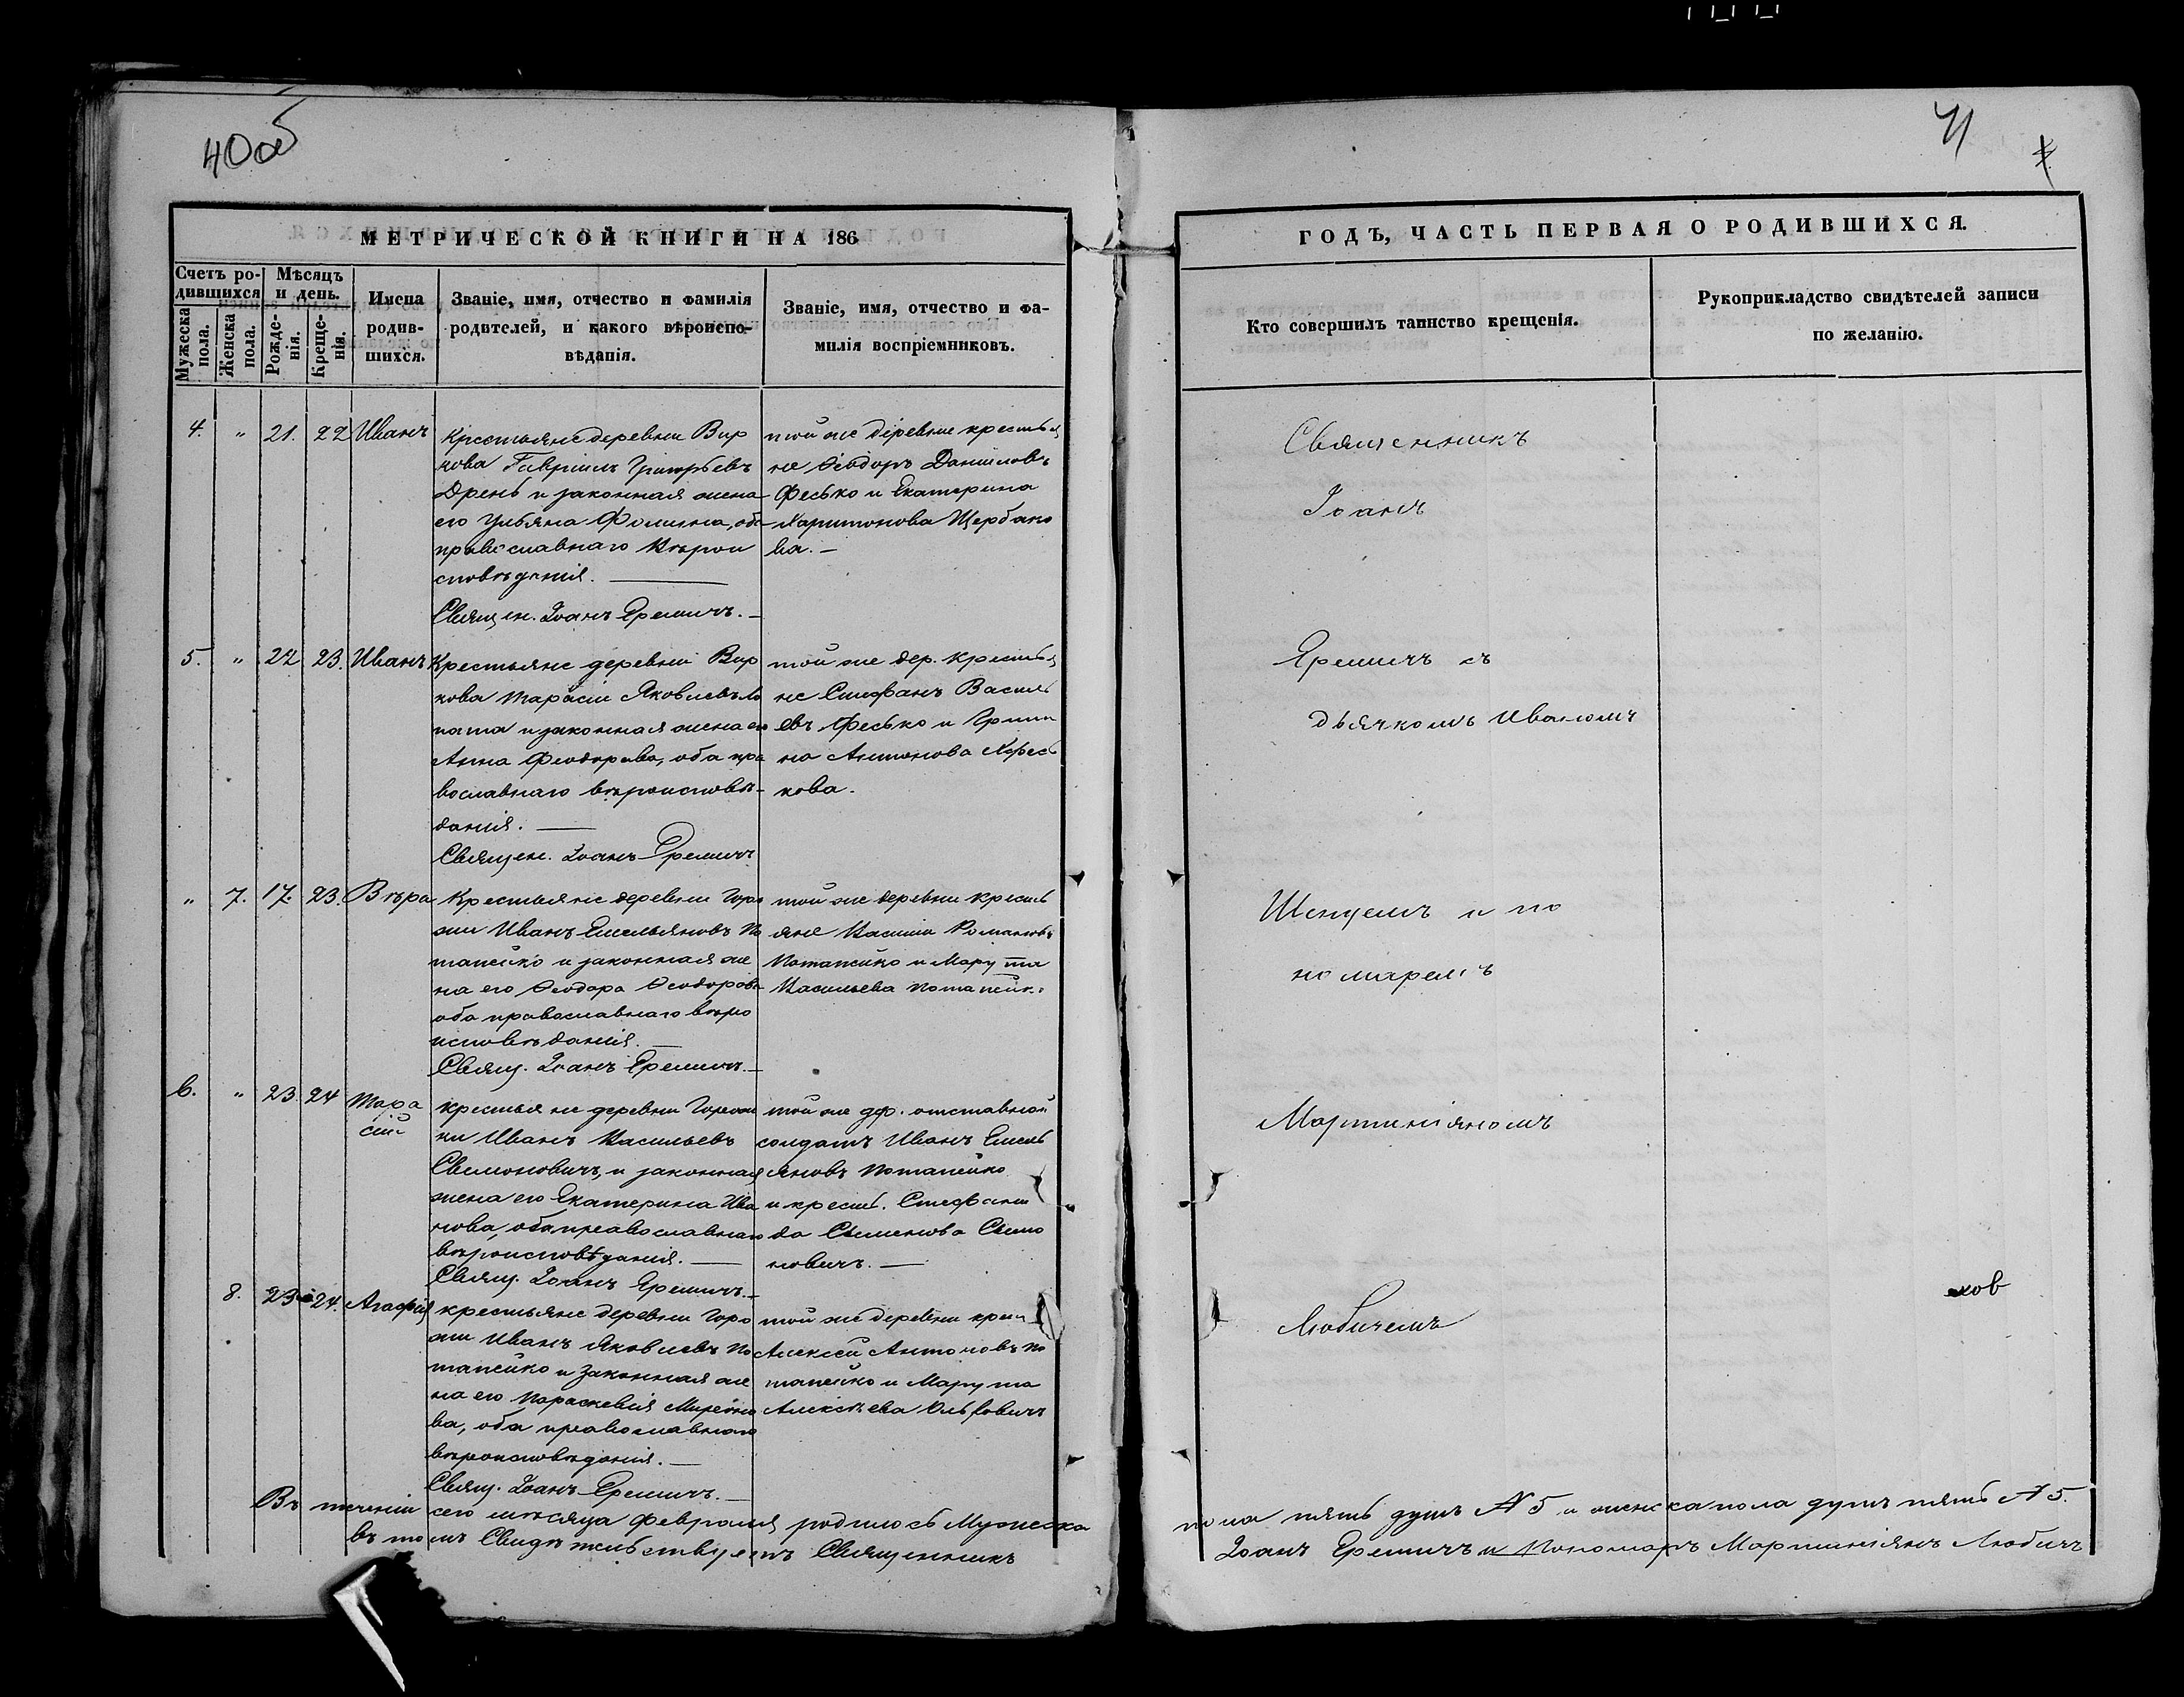 40 об
41
МЕТРИЧЕСКОЙ КНИГИ НА 186
Счетъ ро-
дившихся
Мѣсяцъ
и день.
Мужеска
пола.
Женска
пола.
Рожде-
нія.
Креще-
нія.
Имена
родив-
шихся.
Званіе, имя, отчество и фамилія
родителей, и какого вѣроиспо-
вѣданія.
Званіе, имя, отчество и фа-
милія воспріемниковъ.
4. " 21. 22 Иванъ
Крестьяне деревни Вир
кова Гавріилъ Григорьевъ
Дрень и законная жена
его Ульяна Фомина, оба
православнаго вѣрои
сповѣданія.
Священ. Іоанъ Еремичъ.
той же деревни крестья
не Ѳеодоръ Даниловъ
Фесько и Екатерина
Харитонова Щербако
ва.
5. " 22 23. Иванъ
Крестьяне деревни Вир
кова Тарасій Яковлевъ Ло
пата и законная жена его
Анна Феодорова, оба пра
вославнаго вѣроисповѣ-
данія.
Священ. Іоанъ Еремичъ
той же дер. крестья
не Стефанъ Василь
евъ Фесько и
на Антонова
кова.
" 7. 17. 23. Вѣра
Крестьяне деревни Горо
жи Иванъ Емельяновъ По
тапейко и законная же
на его Ѳеодора Ѳеодорова
оба православнаго вѣро
исповѣданія.
Свящ. Іоанъ Еремичъ.
той же деревни кресть
яне Василій Романовъ
Потапейко и Марута
Васильева Потапейк.
6. " 23. 24 Тара
сій
крестьяне деревни
Иванъ Васильевъ
Симоновичъ, и законная
жена его Екатерина Ива
нова, оба православнаго
вѣроисповѣданія.
Свящ. Іоанъ Еремичъ.
той же дер. отставной
солдатъ Иванъ Емель
яновъ Потапейко
и крест. Стефани
да Симонова Симо
новичъ.
8. 23 24. Агафія
крестьяне деревни Горо
жи Иванъ Яковлевъ По
тапейко и законная же
на его Параскевія
ва, оба православнаго
вѣроисповѣданія.
Свящ. Іоанъ Еремичъ.
той же деревни крест
Алексѣй Антоновъ По
тапейко и Марута
Алексѣева
Въ теченіи сего мѣсяца февраля родилось Мужеска
въ томъ Свидѣтельствуетъ Священникъ
ГОДЪ, ЧАСТЬ ПЕРВАЯ О РОДИВШИХСЯ.
Кто совершилъ таинство крещенія.
Рукоприкладство свидѣтелей записи
по желанію.
Священникъ
Іоанъ
Еремичъ съ
дьячкомъ Иваномъ
и по
номаремъ
Мартиніяномъ
Любичемъ
ков
пола пять душъ № 5 и женска пола душъ пять № 5.
Іоанъ Еремичъ и Пономарь Мартиніянъ Любичъ